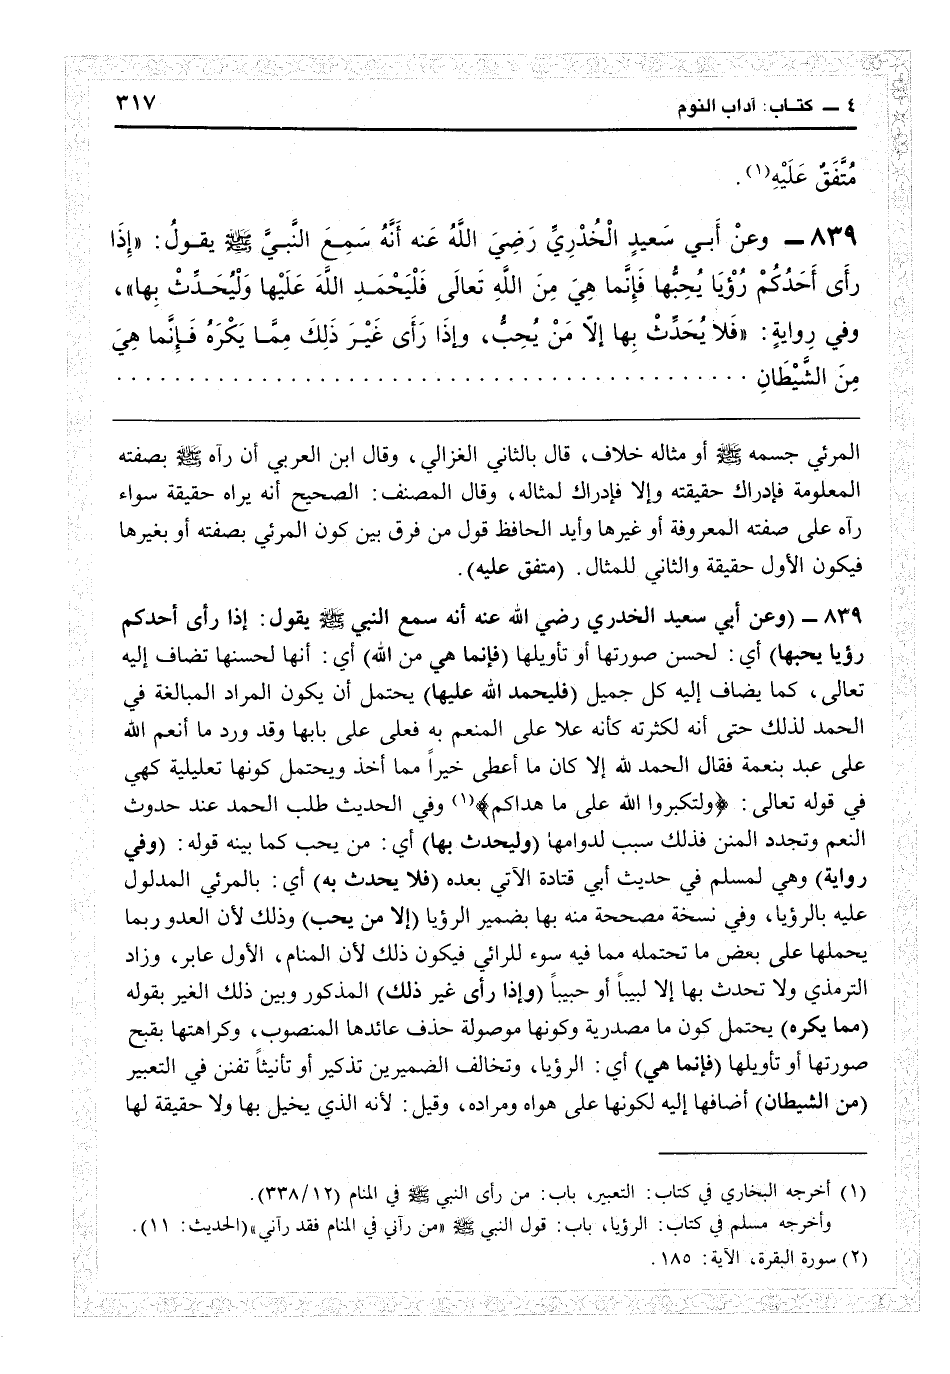 ٤ ـ كتـاب: آداب النوم
٣١٧
مُتَّفَقٌ عَلَيْهِ(١).
٨٣٩ ـ وعنْ أَبـي سَعيدٍ الْخُدْرِيِّ رَضِيَ اللَّهُ عَنه أَنَّهُ سَمِعَ النَّبـيَّ ﷺ يقـولُ: «إِذَا
رأى أَحَدُكُمْ رُؤْيَا يُحِبُّها فَإِنَّما هِيَ مِنَ اللَّهِ تَعالَى فَلْيَحْمَـدِ اللَّهَ عَلَيْها وَلْيُحَـدِّثْ بِها»،
وفي رِوايةٍ: «فَلا يُحَدِّثْ بِها إلاّ مَنْ يُحِبُّ، وإذَا رَأى غَيْـرَ ذَلِكَ مِمَّـا يَكْرَهُ فَـإنَّما هِيَ
مِنَ الشَّيْطَانِ . . . . . . . . . . . . . . . . . . . . . . . . . . . . . . . . . . . . . . . . . . . .
المرئي جسمه ﷺ أو مثاله خلاف، قال بالثاني الغزالي، وقال ابن العربي أن رآه ﷺ بصفته
المعلومة فإدراك حقيقته وإلا فإدراك لمثاله، وقال المصنف: الصحيح أنه يراه حقيقة سواء
رآه على صفته المعروفة أو غيرها وأيد الحافظ قول من فرق بين كون المرئي بصفته أو بغيرها
فيكون الأول حقيقة والثاني للمثال. (متفق عليه).
٨٣٩ ـ (وعن أبي سعيد الخدري رضي الله عنه أنه سمع النبي ﷺ يقول: إذا رأى أحدكم
رؤيا يحبها) أي: لحسن صورتها أو تأويلها (فإنما هي من الله) أي: أنها لحسنها تضاف إليه
تعالى، كما يضاف إليه كل جميل (فليحمد الله عليها) يحتمل أن يكون المراد المبالغة في
الحمد لذلك حتى أنه لكثرته كأنه علا على المنعم به فعلى على بابها وقد ورد ما أنعم الله
على عبد بنعمة فقال الحمد لله إلا كان ما أعطى خيراً مما أخذ ويحتمل كونها تعليلية كهي
في قوله تعالى: ﴿ولتكبروا الله على ما هداكم﴾(١) وفي الحديث طلب الحمد عند حدوث
النعم وتجدد المنن فذلك سبب لدوامها (وليحدث بها) أي: من يحب كما بينه قوله: (وفي
رواية) وهي لمسلم في حديث أبي قتادة الآتي بعده (فلا يحدث به) أي: بالمرئي المدلول
عليه بالرؤيا، وفي نسخة مصححة منه بها بضمير الرؤيا (إلا من يحب) وذلك لأن العدو ربما
يحملها على بعض ما تحتمله مما فيه سوء للرائي فيكون ذلك لأن المنام، الأول عابر، وزاد
الترمذي ولا تحدث بها إلا لبيباً أو حبيباً (وإذا رأى غير ذلك) المذكور وبين ذلك الغير بقوله
(مما يكره) يحتمل كون ما مصدرية وكونها موصولة حذف عائدها المنصوب، وكراهتها بقبح
صورتها أو تأويلها (فإنما هي) أي: الرؤيا، وتخالف الضميرين تذكير أو تأنيثاً تفنن في التعبير
(من الشيطان) أضافها إليه لكونها على هواه ومراده، وقيل: لأنه الذي يخيل بها ولا حقيقة لها
(١) أخرجه البخاري في كتاب: التعبير، باب: من رأى النبي ﷺ في المنام (٣٣٨/١٢).
وأخرجه مسلم في كتاب: الرؤيا، باب: قول النبي ﷺ «من رآني في المنام فقد رآني»(الحديث: ١١).
(٢) سورة البقرة، الآية: ١٨٥.